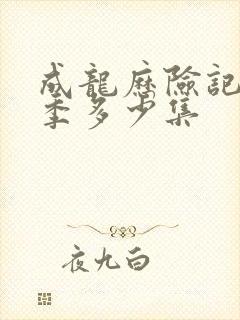 成龍歷險記
季多少集
夜九白